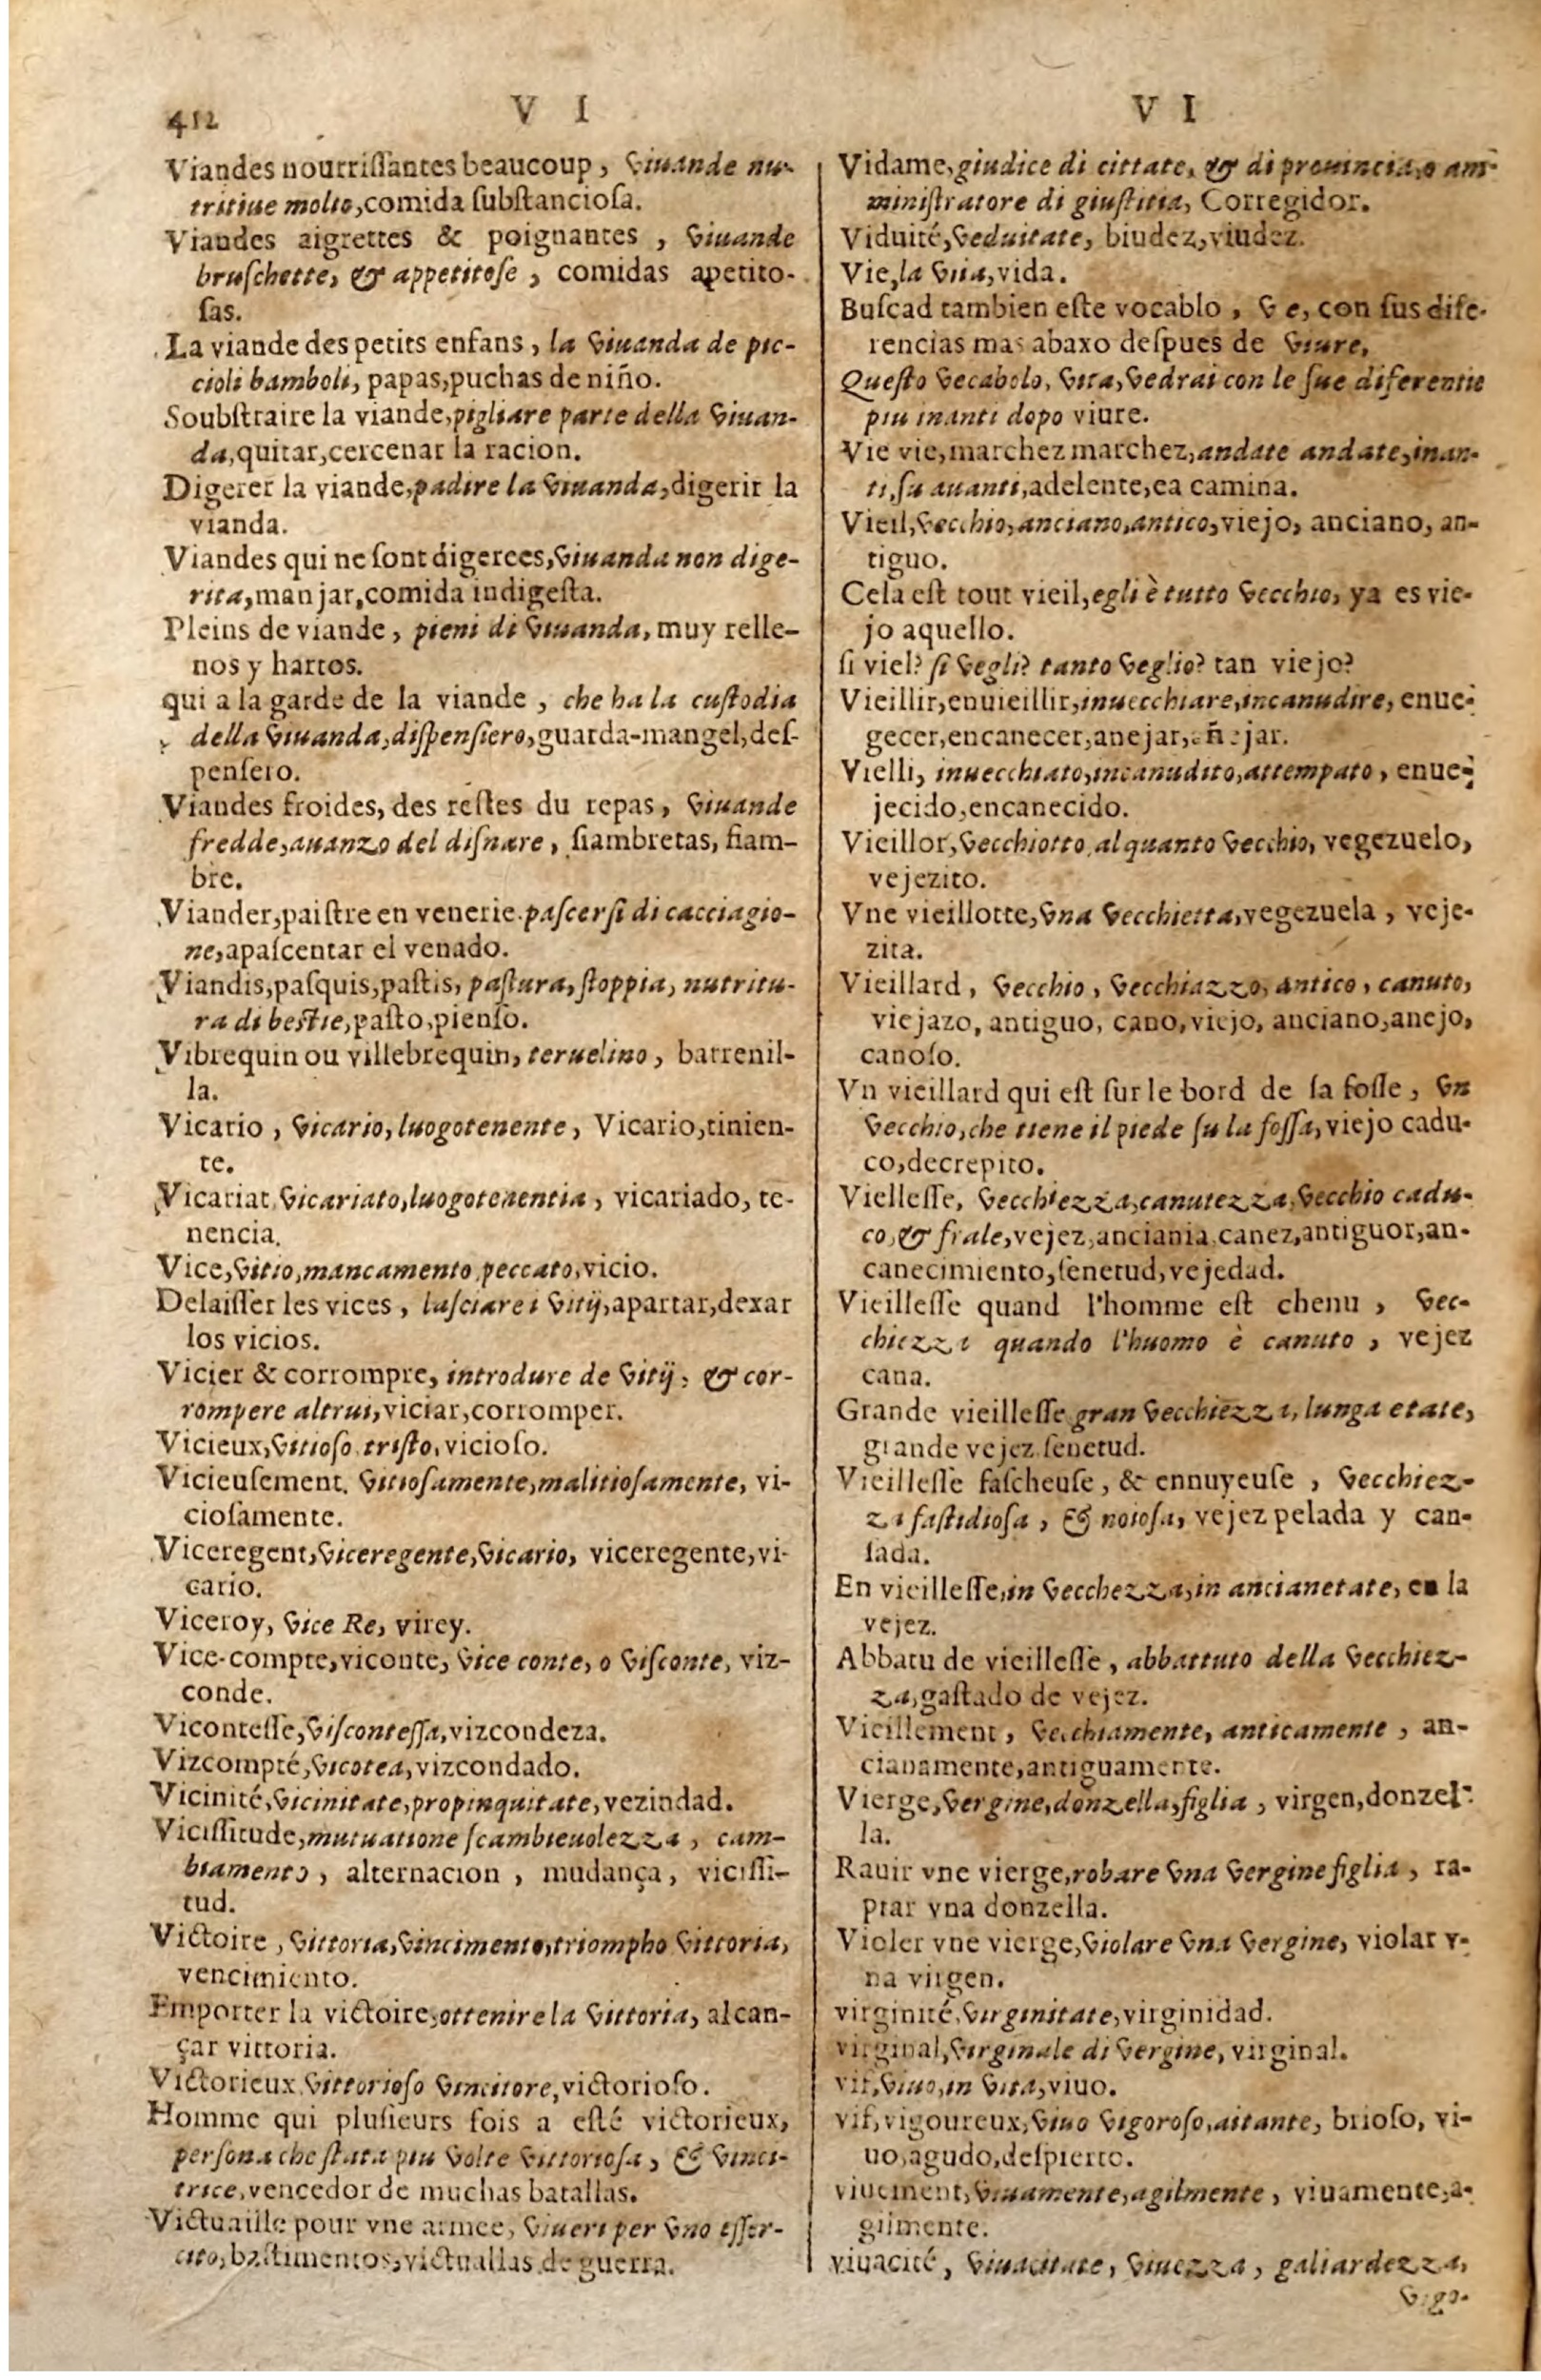 412
V I
Viandes nourriſſantes beaucoup, viuande nu-
tritiue molto, comida ſubſtancioſa.
Viandes aigrettes & poignantes, viuande
bruſchette, & appetitoſe, comidas apetito-
ſas.
La viande des petits enfans, la viuanda de pic-
cioli bamboli, papas, puchas de niño.
Soubſtraire la viande, pigliare parte della viuan-
da, quitar, cercenar la racion.
Digerer la viande, padire la viuanda, digerir la
vianda.
Viandes qui ne ſont digerees, viuanda non dige-
rita, manjar, comida indigeſta.
Pleins de viande, pieni di viuanda, muy relle-
nos y hartos.
qui a la garde de la viande, che ha la cuſtodia
della viuanda, diſpenſiero, guarda-mangel, deſ-
penſero.
Viandes froides, des reſtes du repas, viuande
fredde, auanzo del diſnare, fiambretas, fiam-
bre.
Viander, paiſtre en venerie. paſcerſi di cacciagio-
ne, apaſcentar el venado.
Viandis, paſquis, paſtis, paſtura, ſtoppia, nutritu-
ra di beſtie, paſto, pienſo.
Vibrequin ou villebrequin, teruelino, barrenil-
la.
Vicario, vicario, luogotenente, Vicario, tinien-
te.
Vicariat, vicariato, luogotenentia, vicariado, te-
nencia.
Vice, vitio, mancamento, peccato, vicio.
Delaiſſer les vices, laſciare i vitij, apartar, dexar
los vicios.
Vicier & corrompre, introdure de vitij, & cor-
rompere altrui, viciar, corromper.
Vicieux, vitioſo, triſto, vicioſo.
Vicieuſement, vitioſamente, malitioſamente, vi-
cioſamente.
Viceregent, viceregente, vicario, viceregente, vi-
cario.
Viceroy, vice Re, virey.
Vice-compte, viconte, vice conte, o viſconte, viz-
conde.
Viconteſſe, viſconteſſa, vizcondeza.
Vizcompté, vicotea, vizcondado.
Vicinité, vicinitate, propinquitate, vezindad.
Viciſſitude, mutuatione ſcambieuolezza, cam-
biamento, alternacion, mudança, viciſſi-
tud.
Victoire, vittoria, vincimento, triompho vittoria,
vencimiento.
Emporter la victoire, ottenire la vittoria, alcan-
çar vittoria.
Victorieux, vittorioſo vincitore, victorioſo.
Homme qui pluſieurs fois a eſté victorieux,
perſona che ſtata piu volte vittorioſa, & vinci-
trice, vencedor de muchas batallas.
Victuaille pour vne armee, viueri per vno eſſer-
cito, baſtimentos, victuallas de guerra.
V I
Vidame, giudice di cittate, & di prouincia, o am-
miniſtratore di giuſtitia, Corregidor.
Viduité, veduitate, biudez, viudez.
Vie, la vita, vida.
Buſcad tambien eſte vocablo, v e, con ſus dife-
rencias mas abaxo deſpues de viure.
Queſto vocabolo, vita, vedrai con le ſue diferentie
piu inanti dopo viure.
Vie vie, marchez marchez, andate andate, inan-
ti, ſu auanti, adelente, ea camina.
Vieil, vecchio, anciano, antico, viejo, anciano, an-
tiguo.
Cela eſt tout vieil, egli è tutto vecchio, ya es vie-
jo aquello.
ſi viel? ſi vegli? tanto veglio? tan viejo?
Vieillir, enuieillir, inuecchiare, incanudire, enue-
gecer, encanecer, anejar, añejar.
Vielli, inuecchiato, incanudito, attempato, enue-
jecido, encanecido.
Vieillor, vecchiotto, alquanto vecchio, vegezuelo,
vejezito.
Vne vieillotte, vna vecchietta, vegezuela, veje-
zita.
Vieillard, vecchio, vecchiazzo, antico, canuto,
viejazo, antiguo, cano, viejo, anciano, anejo,
canoſo.
Vn vieillard qui eſt ſur le bord de ſa foſſe, vn
vecchio, che tiene il piede ſu la foſſa, viejo cadu-
co, decrepito.
Vielleſſe, vecchiezza, canutezza, vecchio cadu-
co, & frale, vejez, anciania, canez, antiguor, an-
canecimiento, ſenetud, vejedad.
Vieilleſſe quand l'homme eſt chenu, vec-
chiezza quando l'huomo è canuto, vejez
cana.
Grande vieilleſſe gran vecchiezza, lunga etate,
grande vejez ſenetud.
Vieilleſſe faſcheuſe, & ennuyeuſe, vecchiez-
za faſtidioſa, & noioſa, vejez pelada y can-
ſada.
En vieilleſſe, in vecchezza, in ancianetate, en la
vejez.
Abbatu de vieilleſſe, abbattuto della vecchiez-
za, gaſtado de vejez.
Vieillement, vecchiamente, anticamente, an-
cianamente, antiguamente.
Vierge, vergine, donzella, figlia, virgen, donzel-
la.
Rauir vne vierge, robare vna vergine figlia, ra-
ptar vna donzella.
Violer vne vierge, violare vna vergine, violar v-
na virgen.
virginité, virginitate, virginidad.
virginal, virginale di vergine, virginal.
vif, viuo, in vita, viuo.
vif, vigoureux, viuo vigoroſo, aitante, brioſo, vi-
uo, agudo, deſpierto.
viuement, viuamente, agilmente, viuamente, a-
gilmente.
viuacité, viuacitate, viuezza, galiardezza,
vigo-